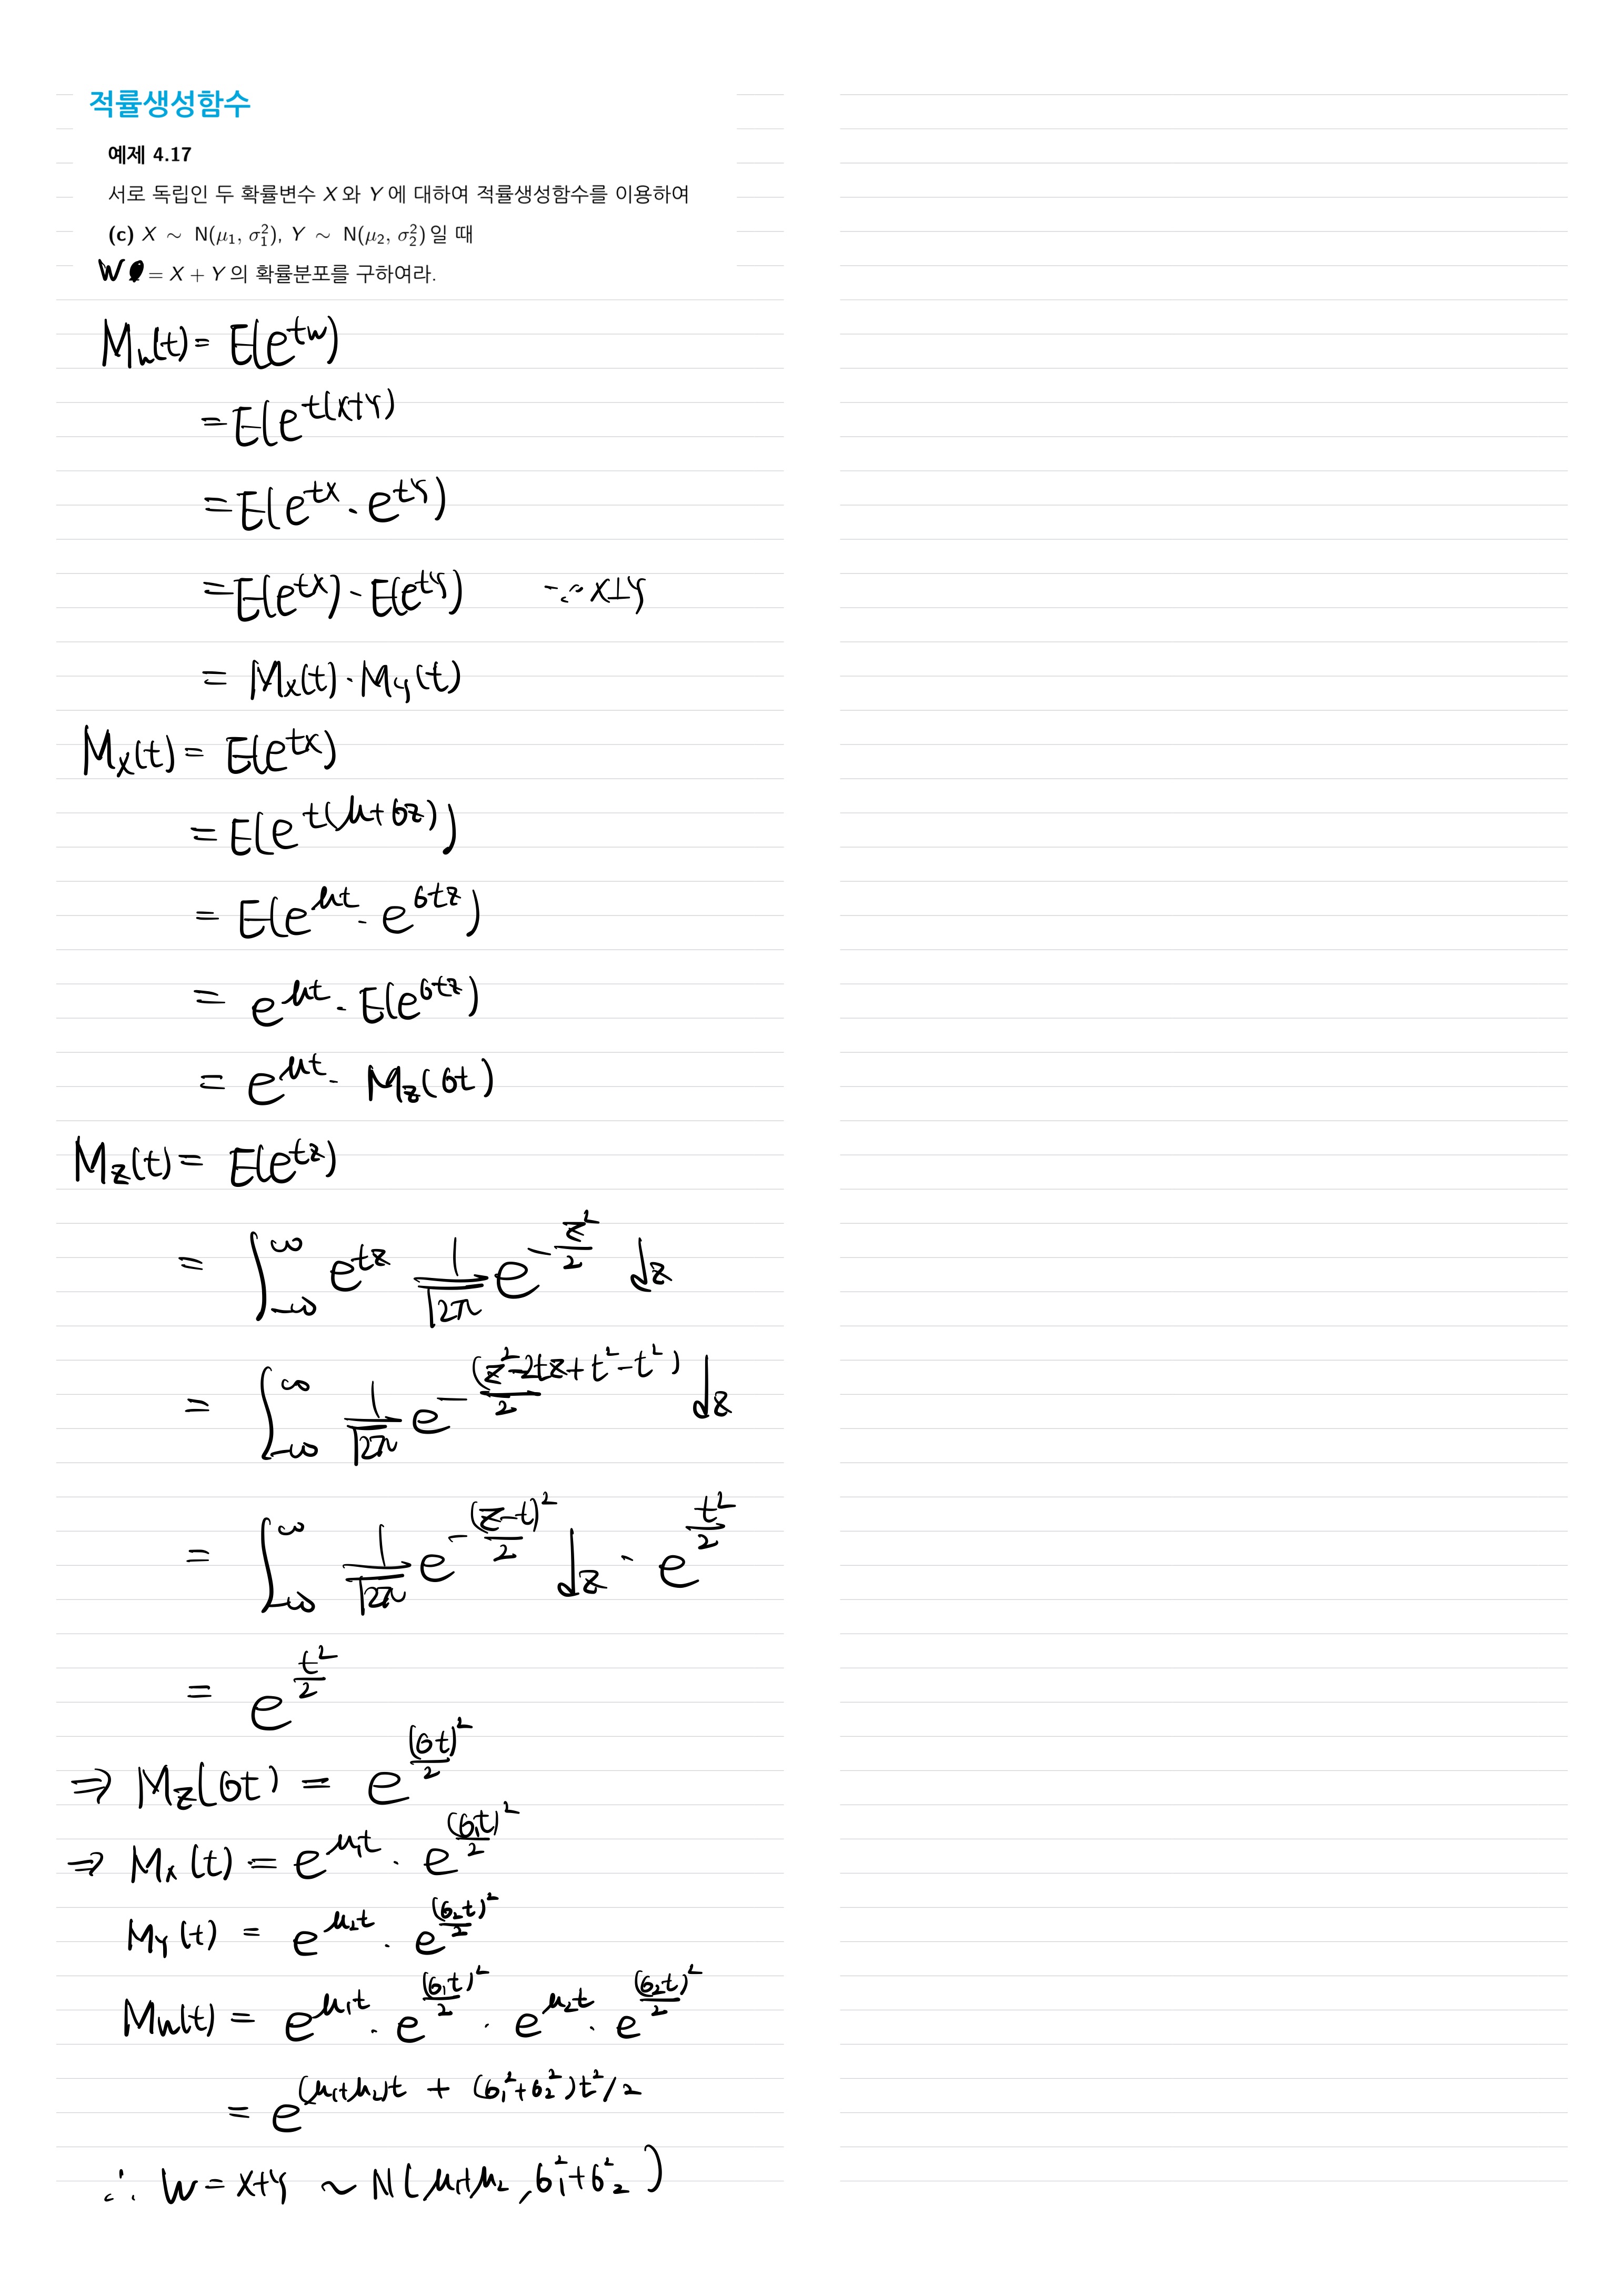 적률생성함수
예제 4.17
서로 독립인 두 확률변수 X 와 Y 에 대하여 적률생성함수를 이용하여
(c) X ∼ N(μ₁, σ₁²), Y ∼ N(μ₂, σ₂²) 일 때
W = X + Y 의 확률분포를 구하여라.
M_W(t) = E(e^{tW})
= E(e^{t(X+Y)}
= E(e^{tX} · e^{tY})
= E(e^{tX}) · E(e^{tY}) ∵ X⊥Y
= M_X(t) · M_Y(t)
M_X(t) = E(e^{tX})
= E(e^{t(μ+σz)})
= E(e^{μt} · e^{σtz})
= e^{μt} · E(e^{σtz})
= e^{μt} · M_z(σt)
M_z(t) = E(e^{tz})
= ∫_{-∞}^{∞} e^{tz} 1/√2π e^{-z²/2} dz
= ∫_{-∞}^{∞} 1/√2π e^{-(z²-2tz+t²-t²)/2} dz
= ∫_{-∞}^{∞} 1/√2π e^{-(z-t)²/2} dz · e^{t²/2}
= e^{t²/2}
⇒ M_z(σt) = e^{(σt)²/2}
⇒ M_X(t) = e^{μ₁t} · e^{(σ₁t)²/2}
M_Y(t) = e^{μ₂t} · e^{(σ₂t)²/2}
M_W(t) = e^{μ₁t} · e^{(σ₁t)²/2} · e^{μ₂t} · e^{(σ₂t)²/2}
= e^{(μ₁+μ₂)t + (σ₁²+σ₂²)t²/2}
∴ W = X+Y ∼ N(μ₁+μ₂, σ₁²+σ₂²)